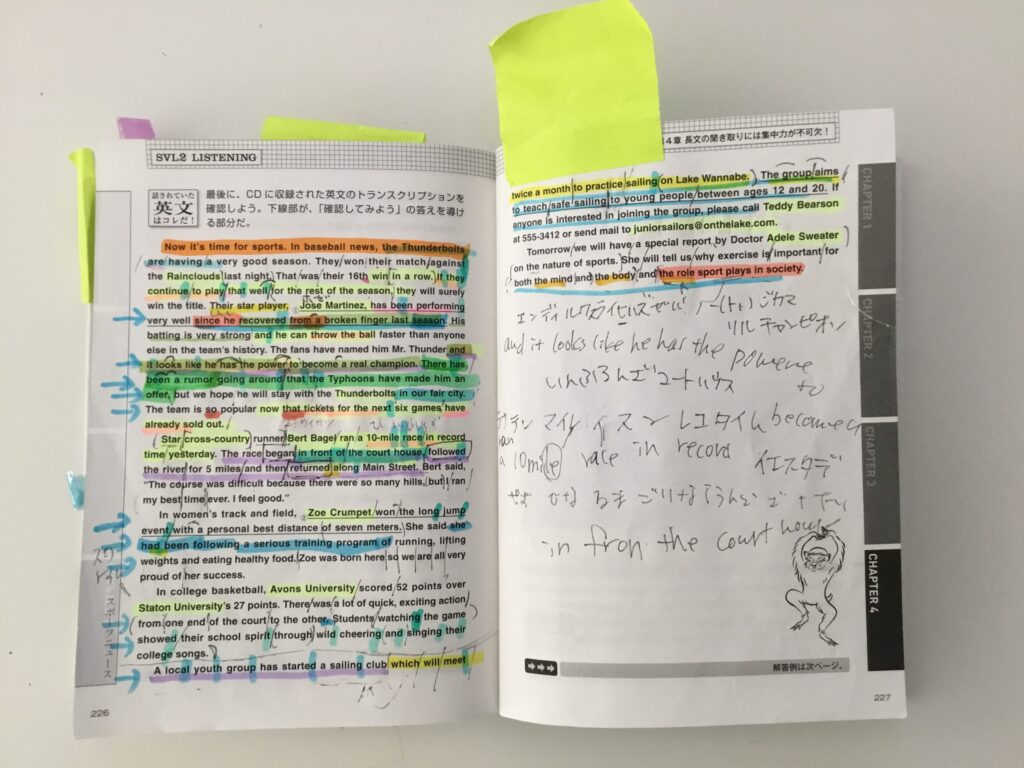 SVL2 LISTENING
話されていた
英文
はコレだ!
最後に、CDに収録された英文のトランスクリプションを
確認しよう。下線部が、「確認してみよう」の答えを導け
る部分だ。
Now it's time for sports. In baseball news, the Thunderbolts
are having a very good season. They won their match against
the Rainclouds last night. That was their 16th win in a row. If they
continue to play that well for the rest of the season, they will surely
win the title. Their star player, Jose Martinez, has been performing
very well since he recovered from a broken finger last season. His
batting is very strong and he can throw the ball faster than anyone
else in the team's history. The fans have named him Mr. Thunder and
it looks like he has the power to become a real champion. There has
been a rumor going around that the Typhoons have made him an
offer, but we hope he will stay with the Thunderbolts in our fair city.
The team is so popular now that tickets for the next six games have
already sold out.
Star cross-country runner Bert Bagel ran a 10-mile race in record
time yesterday. The race began in front of the court house, followed
the river for 5 miles and then returned along Main Street. Bert said,
"The course was difficult because there were so many hills, but I ran
my best time ever. I feel good."
In women's track and field, Zoe Crumpet won the long jump
event with a personal best distance of seven meters. She said she
had been following a serious training program of running, lifting
weights and eating healthy food. Zoe was born here so we are all very
proud of her success.
In college basketball, Avons University scored 52 points over
Staton University's 27 points. There was a lot of quick, exciting action
from one end of the court to the other. Students watching the game
showed their school spirit through wild cheering and singing their
college songs.
A local youth group has started a sailing club which will meet
スポーツニュース
226
4章 長文の聞き取りには集中力が不可欠!
twice a month to practice sailing on Lake Wannabe. The group aims
to teach safe sailing to young people between ages 12 and 20. If
anyone is interested in joining the group, please call Teddy Bearson
at 555-3412 or send mail to juniorsailors@onthelake.com.
Tomorrow we will have a special report by Doctor Adele Sweater
on the nature of sports. She will tell us why exercise is important for
both the mind and the body and the role sport plays in society.
リルチャンピオン
and it looks like he has the powere
to
become a
ran
a 10mile race in record
イエスタデ
in fron the court house
解答例は次ページ。
227
CHAPTER 1
CHAPTER 2
CHAPTER 3
CHAPTER 4